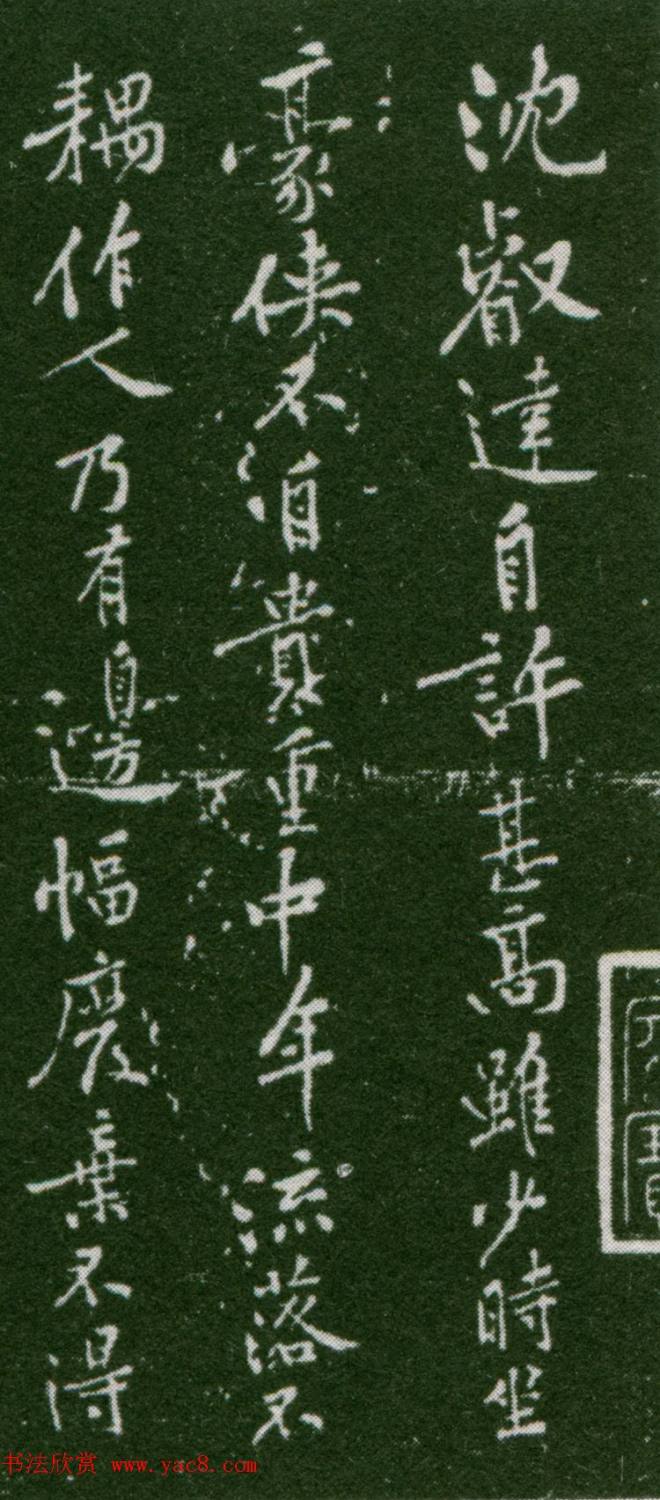 沈叡達自許甚高雖少時坐
豪俠不自貴重中年流落不
耦作人乃有邊幅廢棄不得
书法欣赏 www.yac8.com